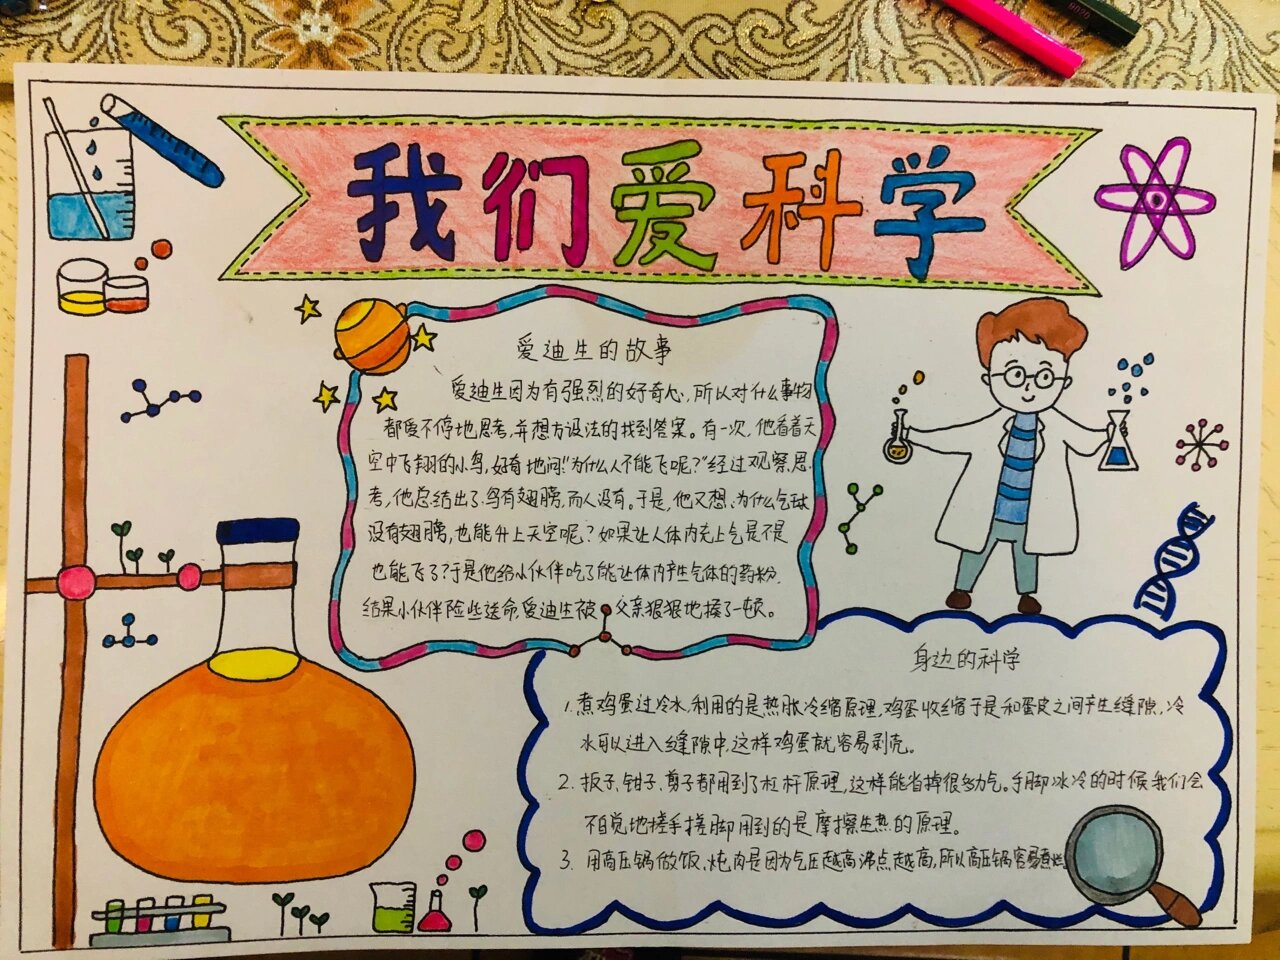 我们爱科学
爱迪生的故事
爱迪生因为有强烈的好奇心,所以对什么事物
都爱不停地思考,并想方设法的找到答案。有一次,他看着天
空中飞翔的小鸟,好奇地问!"为什么人不能飞呢?"经过观察思
考,他总结出了鸟有翅膀,而人没有。于是,他又想、为什么气球
没有翅膀,也能升上天空呢?如果让人体内充上气是不是
也能飞了?于是他给小伙伴吃了能让体内产生气体的药粉.
结果小伙伴险些送命,爱迪生被父亲狠狠地揍了一顿。
身边的科学
1.煮鸡蛋过冷水,利用的是热胀冷缩原理,鸡蛋收缩于是和蛋皮之间产生缝隙,冷
水可以进入缝隙中,这样鸡蛋就容易剥壳。
2.扳子、钳子、剪子都用到了杠杆原理,这样能省掉很多力气。手脚冰冷的时候我们会
不自觉地搓手搓脚用到的是摩擦生热的原理。
3.用高压锅做饭、炖肉是因为气压越高沸点越高,所以高压锅容易煮烂
9020